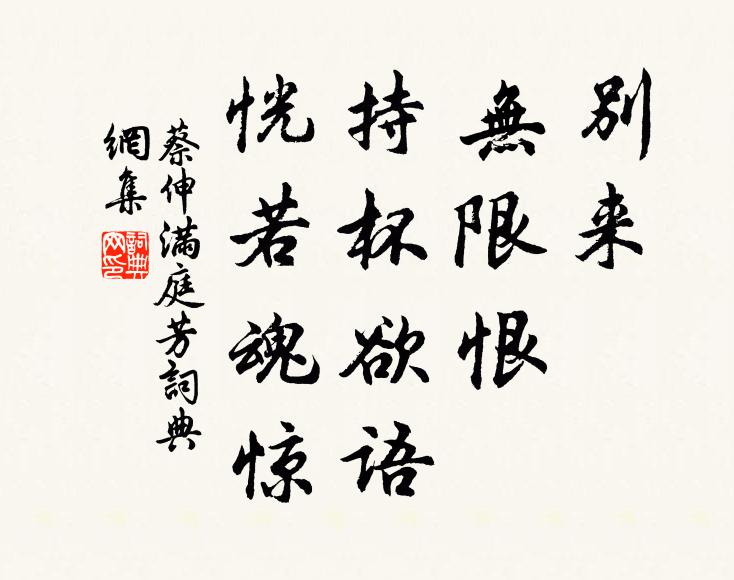 别来
無限恨
持杯欲语
恍若魂惊
蔡伸满庭芳詞典
網集
詞典
网印